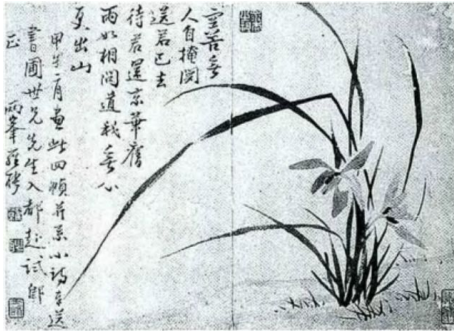 人自掩関
送君已去
待君還京華舊
雨如相問道我無心
更出山
甲午月畫此四幀并系小詩奉送
書圃世兄先生入都赴試即
正 兩峯羅聘